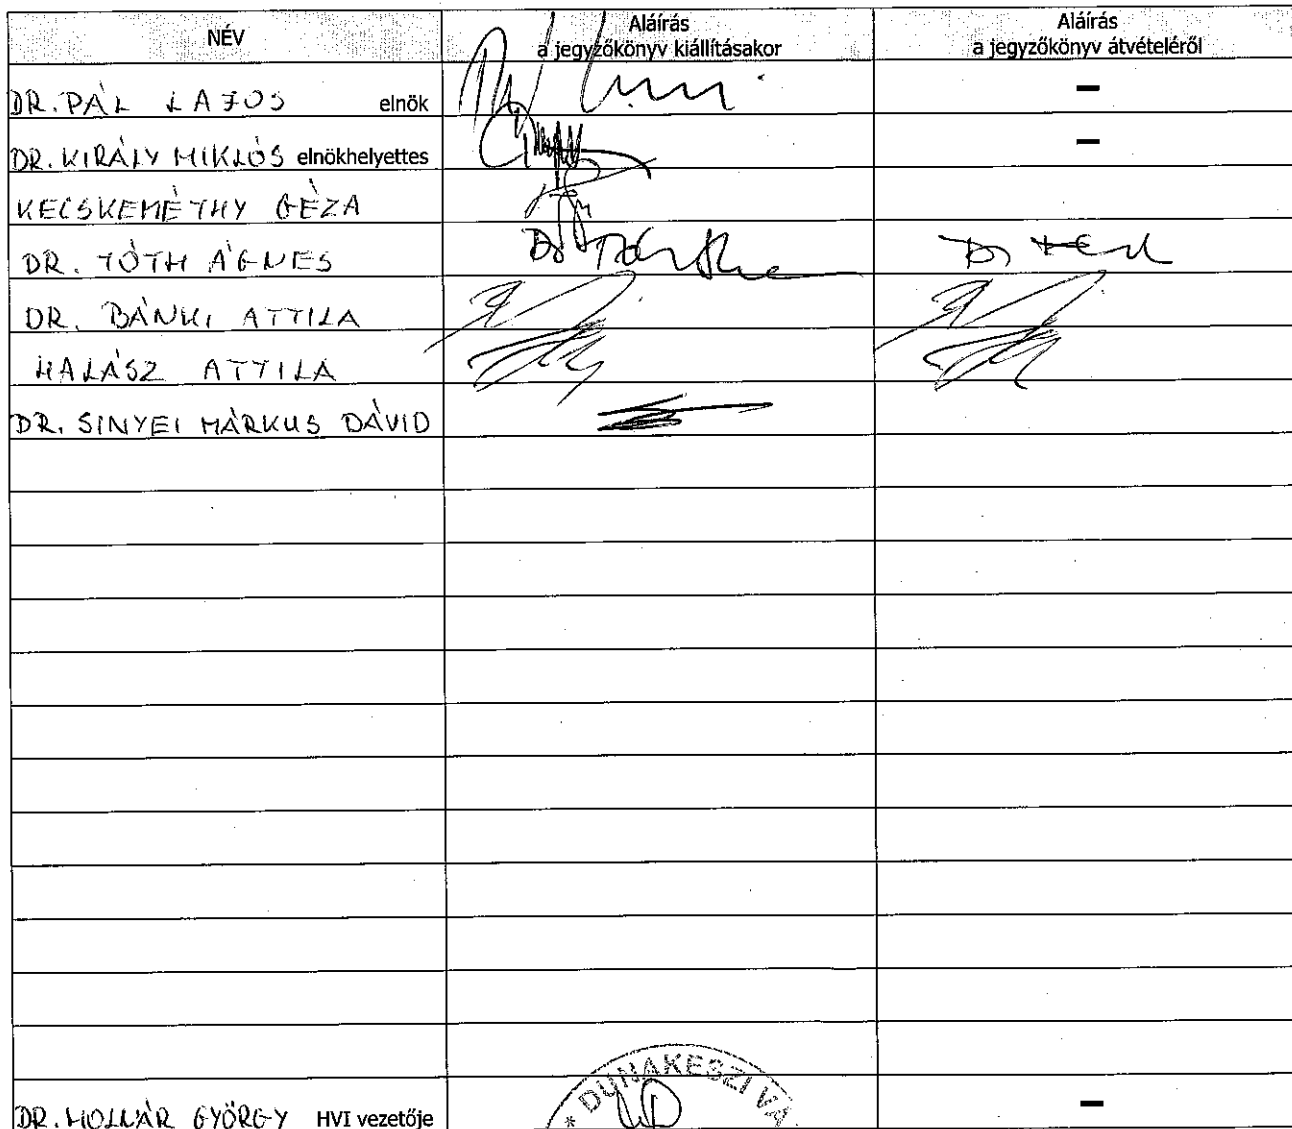 NÉV
Aláírás
a jegyzőkönyv kiállításakor
Aláírás
a jegyzőkönyv átvételéről
DR. PÁL LAJOS elnök
–
DR. KIRÁLY MIKLÓS elnökhelyettes
–
KECSKEMÉTHY GÉZA
DR. TÓTH ÁGNES
DR. BÁNKI ATTILA
HALÁSZ ATTILA
DR. SINYEI MÁRKUS DÁVID
* DUNAKESZI VÁ
DR. MOLNÁR GYÖRGY HVI vezetője
–